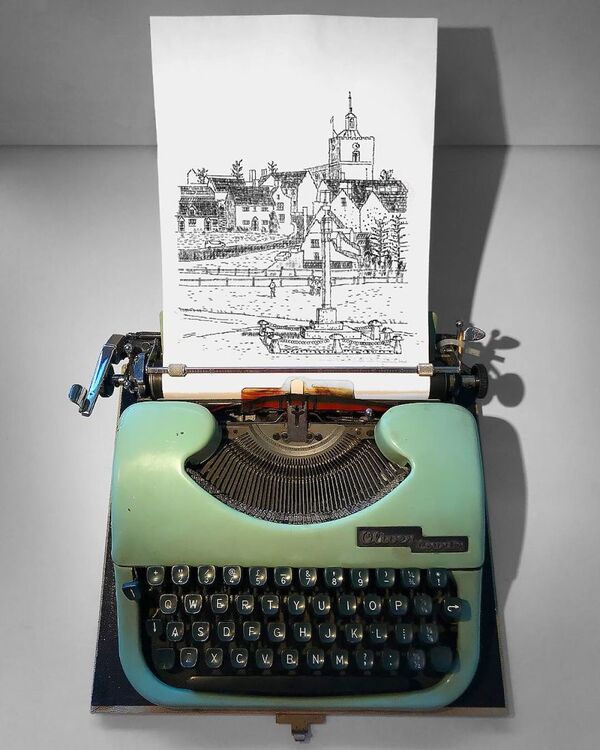 Oliver
5 6 7 8 9
Q W E R T Y U I O P
A S D F G H J K L
Z X C V B N M